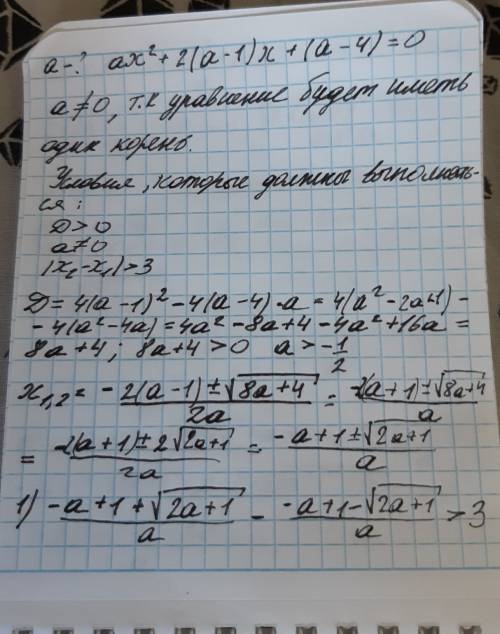 a-? ax² + 2(a-1)x + (a-4) = 0
a≠0, т.к уравнение будет иметь
один корень.
Условия, которые должны выполнять-
ся:
D>0
a≠0
|x₂-x₁|>3
D = 4(a-1)² - 4(a-4)·a = 4(a²-2a+1) -
- 4(a²-4a) = 4a² - 8a + 4 - 4a² + 16a =
8a+4; 8a+4>0 a>-1/2
x₁,₂ = - 2(a-1) ± √8a+4 / 2a = -2(a+1) ± √8a+4 / a
= -2(a+1) ± 2√2a+1 / 2a = -a+1 ± √2a+1 / a
1) -a+1+√2a+1 / a - -a+1-√2a+1 / a > 3